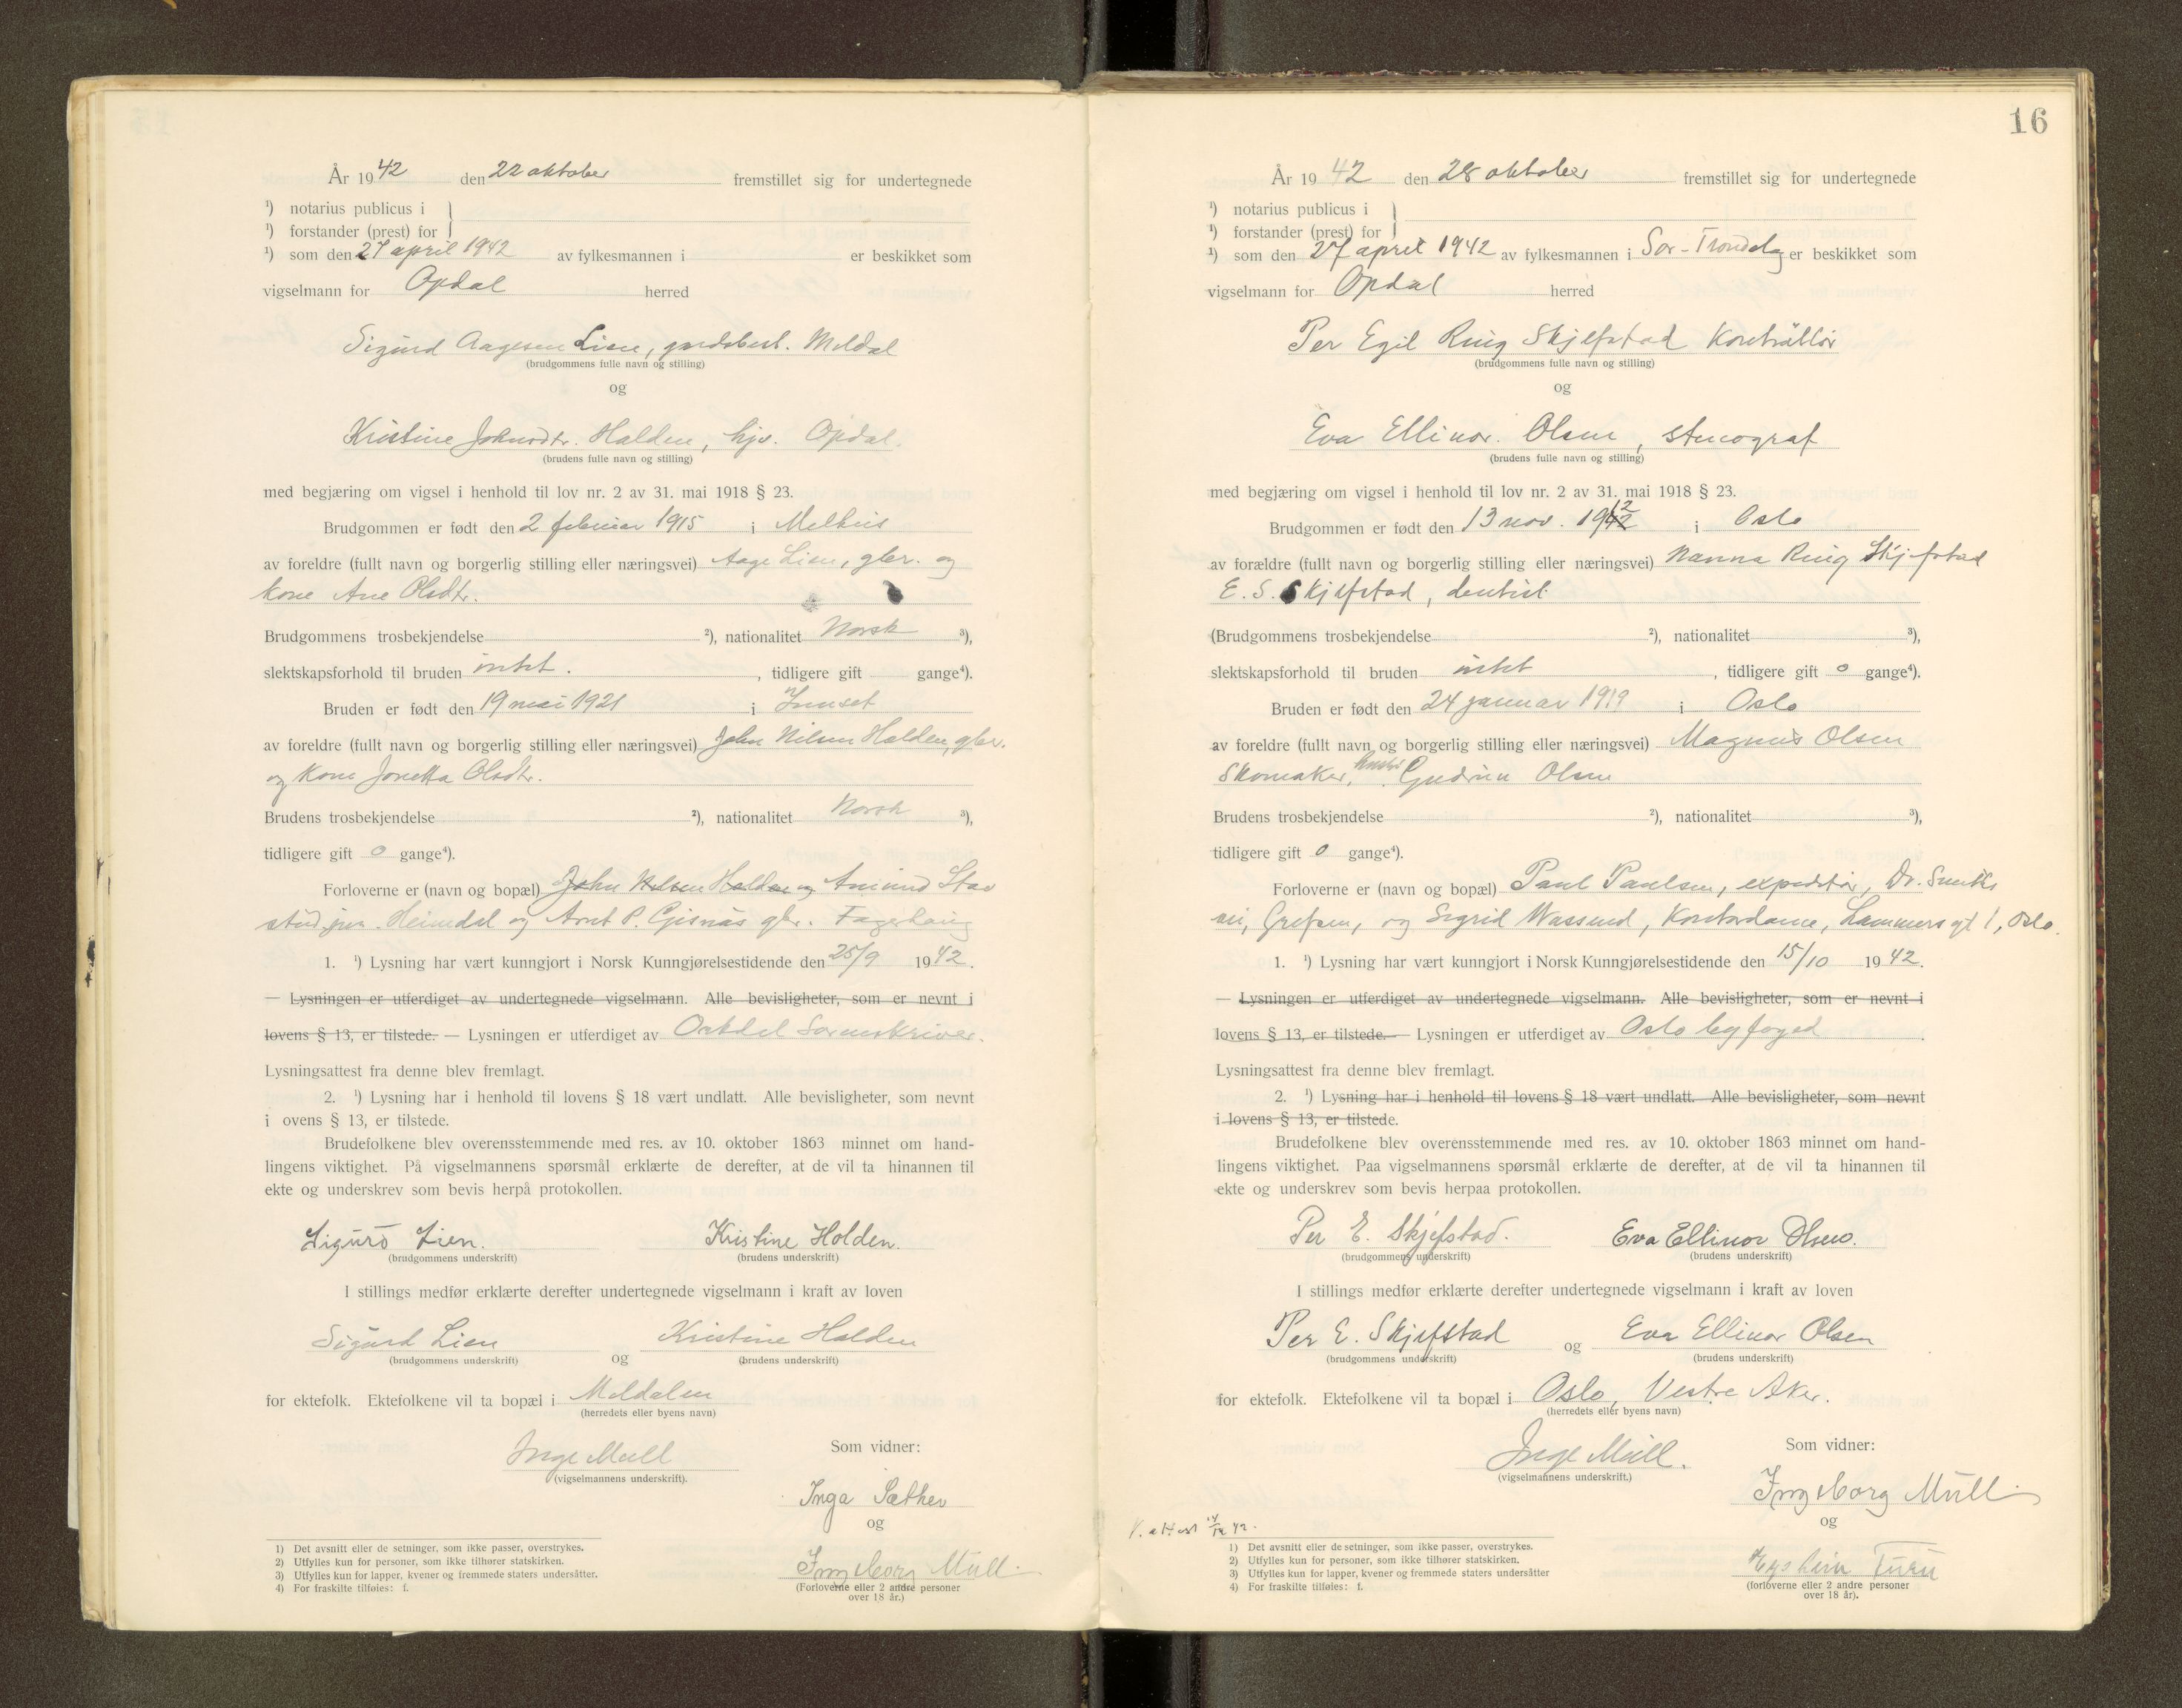 År 1942 den 22 oktober fremstillet sig for undertegnede
¹) notarius publicus i
¹) forstander (prest) for
¹) som den 27 april 1942 av fylkesmannen i er beskikket som
vigselmann for Opdal herred
Sigurd Aagesen Lien, gardsbest. Meldal
(brudgommens fulle navn og stilling)
og
Kristine Johnsdtr. Halden, hjv. Opdal.
(brudens fulle navn og stilling)
med begjæring om vigsel i henhold til lov nr. 2 av 31. mai 1918 § 23.
Brudgommen er født den 2 februar 1915 i Melhus
av foreldre (fullt navn og borgerlig stilling eller næringsvei) Aage Lien, gbr. og
kone Ane Olsdtr.
Brudgommens trosbekjendelse ²), nationalitet Norsk ³),
slektskapsforhold til bruden intet. , tidligere gift gange⁴).
Bruden er født den 19 mai 1921 i Innset
av foreldre (fullt navn og borgerlig stilling eller næringsvei) John Nilsen Halden, gbr.
og kone Jonetta Olsdtr.
Brudens trosbekjendelse ²), nationalitet Norsk ³),
tidligere gift 0 gange⁴).
Forloverne er (navn og bopæl) John Nilsen Halden og Amund Stav
stud. jur. Heimdal og Arnt P. Gisnås gbr. Fagerhaug
1. ¹) Lysning har vært kunngjort i Norsk Kunngjørelsestidende den 25/9 1942.
— Lysningen er utferdiget av undertegnede vigselmann. Alle bevisligheter, som er nevnt i
lovens § 13, er tilstede. — Lysningen er utferdiget av Orkdal Sorenskriver.
Lysningsattest fra denne blev fremlagt.
2. ¹) Lysning har i henhold til lovens § 18 vært undlatt. Alle bevisligheter, som nevnt
i ovens § 13, er tilstede.
Brudefolkene blev overensstemmende med res. av 10. oktober 1863 minnet om hand-
lingens viktighet. På vigselmannens spørsmål erklærte de derefter, at de vil ta hinannen til
ekte og underskrev som bevis herpå protokollen.
Sigurd Lien. Kristine Holden.
(brudgommens underskrift) (brudens underskrift)
I stillings medfør erklærte derefter undertegnede vigselmann i kraft av loven
Sigurd Lien og Kristine Halden
(brudgommens underskrift) (brudens underskrift)
for ektefolk. Ektefolkene vil ta bopæl i Meldalen
(herredets eller byens navn)
Inge Mull
(vigselmannens underskrift).
Som vidner:
Inga Sæther
og
Ingeborg Mull
(Forloverne eller 2 andre personer
over 18 år.)
1) Det avsnitt eller de setninger, som ikke passer, overstrykes.
2) Utfylles kun for personer, som ikke tilhører statskirken.
3) Utfylles kun for lapper, kvener og fremmede staters undersåtter.
4) For fraskilte tilføies: f.
16
År 1942 den 28 oktober fremstillet sig for undertegnede
¹) notarius publicus i
¹) forstander (prest) for
¹) som den 27 april 1942 av fylkesmannen i Sør-Trøndelag er beskikket som
vigselmann for Opdal herred
Per Egil Ring Skjefstad Kontrollør
(brudgommens fulle navn og stilling)
og
Eva Ellinor Olsen, stenograf
(brudens fulle navn og stilling)
med begjæring om vigsel i henhold til lov nr. 2 av 31. mai 1918 § 23.
Brudgommen er født den 13 nov. 1912 i Oslo
av forældre (fullt navn og borgerlig stilling eller næringsvei) Nanna Ring Skjefstad
E. S. Skjefstad, dentist
(Brudgommens trosbekjendelse ²), nationalitet ³),
slektskapsforhold til bruden intet , tidligere gift 0 gange⁴).
Bruden er født den 24 januar 1919 i Oslo
av foreldre (fullt navn og borgerlig stilling eller næringsvei) Magnus Olsen
Skomaker, hustru Gudrun Olsen
Brudens trosbekjendelse ²), nationalitet ³),
tidligere gift 0 gange⁴).
Forloverne er (navn og bopæl) Paul Paulsen, expeditør, Dr. Smiths
vei, Grefsen, og Sigrid Wassend, Kontordame, Lammers gt 1, Oslo.
1. ¹) Lysning har vært kunngjort i Norsk Kunngjørelsestidende den 15/10 1942.
— Lysningen er utferdiget av undertegnede vigselmann. Alle bevisligheter, som er nevnt i
lovens § 13, er tilstede. — Lysningen er utferdiget av Oslo byfoged.
Lysningsattest fra denne blev fremlagt.
2. ¹) Lysning har i henhold til lovens § 18 vært undlatt. Alle bevisligheter, som nevnt
i lovens § 13, er tilstede.
Brudefolkene blev overensstemmende med res. av 10. oktober 1863 minnet om hand-
lingens viktighet. Paa vigselmannens spørsmål erklærte de derefter, at de vil ta hinannen til
ekte og underskrev som bevis herpaa protokollen.
Per E. Skjefstad. Eva Ellinor Olsen.
(brudgommens underskrift) (brudens underskrift)
I stillings medfør erklærte derefter undertegnede vigselmann i kraft av loven
Per E. Skjefstad og Eva Ellinor Olsen
(brudgommens underskrift) (brudens underskrift)
for ektefolk. Ektefolkene vil ta bopæl i Oslo, Vestre Aker.
(herredets eller byens navn)
Inge Mull.
(vigselmannens underskrift.)
Som vidner:
Ingeborg Mull
og
(forloverne eller 2 andre personer
over 18 år).
attest 42.
1) Det avsnitt eller de setninger, som ikke passer, overstrykes.
2) Utfylles kun for personer, som ikke tilhører statskirken.
3) Utfylles kun for lapper, kvener og fremmede staters undersåtter
4) For fraskilte tilføies: f.